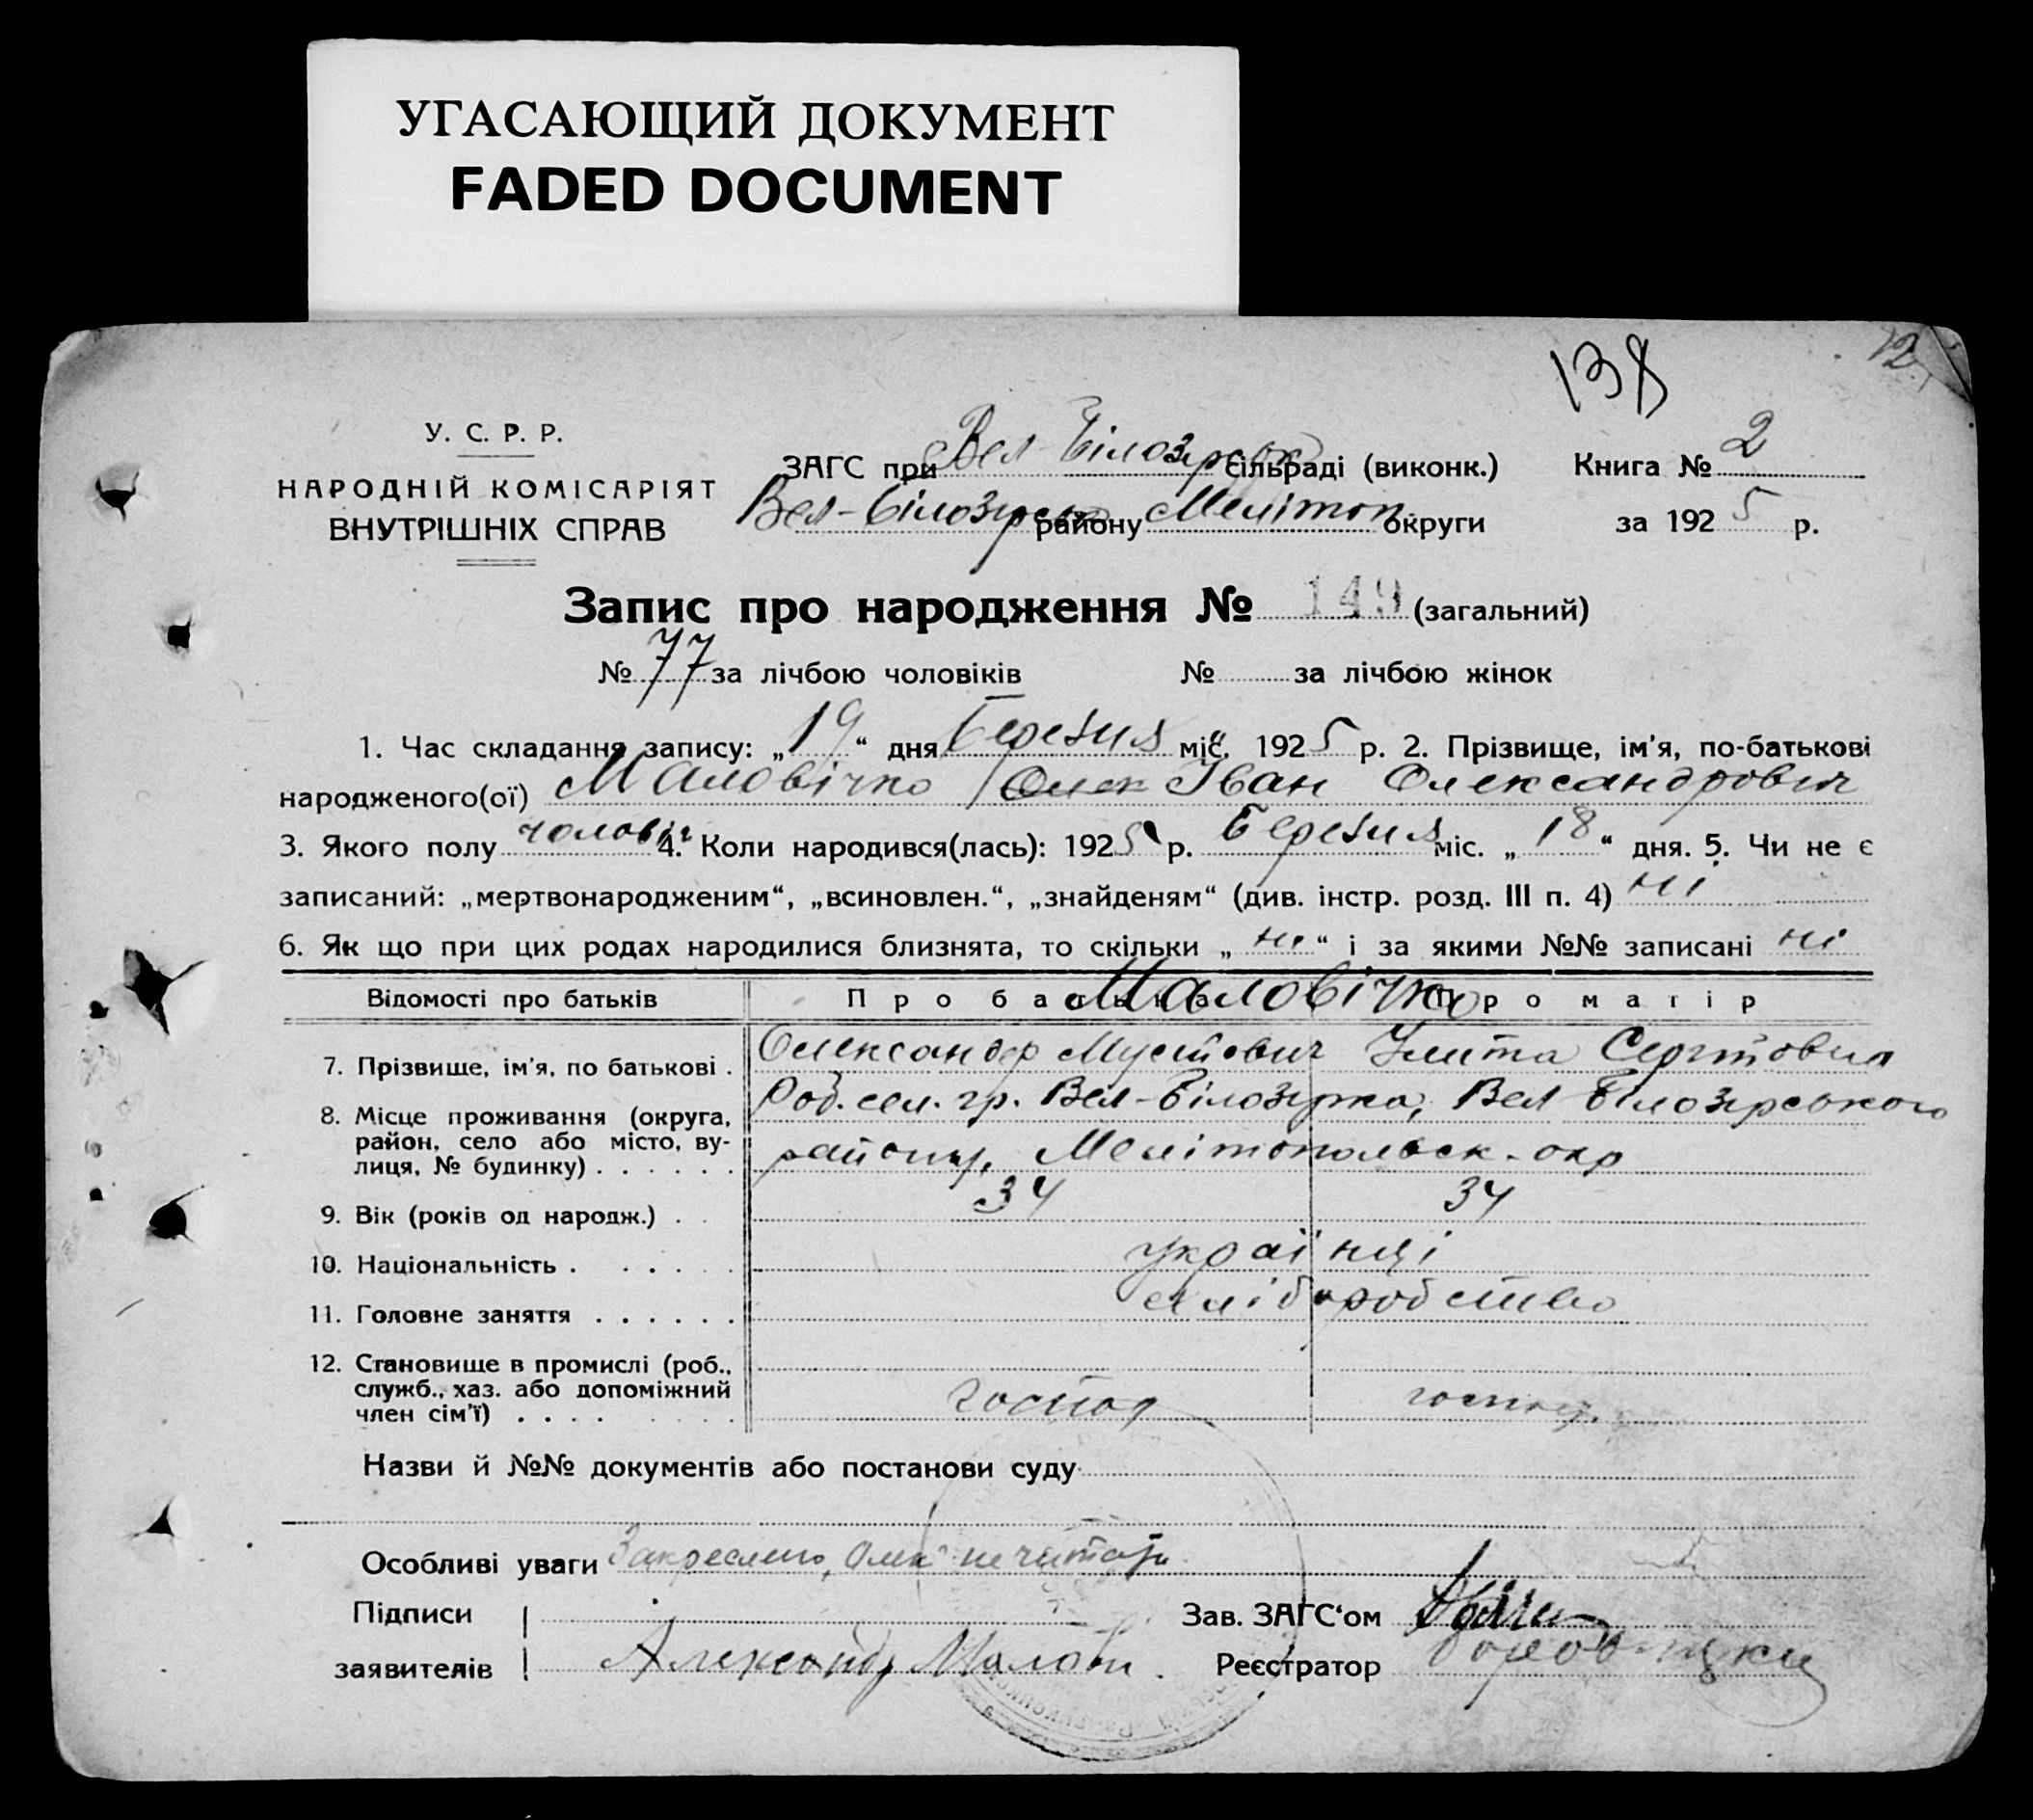 УГАСАЮЩИЙ ДОКУМЕНТ
FADED DOCUMENT
138
12
У. С. Р. Р.
НАРОДНІЙ КОМІСАРІЯТ
ВНУТРІШНІХ СПРАВ
ЗАГС при Вел-Білозірськ сільраді (виконк.) Книга № 2
Вел-Білозірськ району Мелітоп. округи за 1925 р.
Запис про народження № 149 (загальний)
№ 77 за лічбою чоловіків № за лічбою жінок
1. Час складання запису: „19“ дня Березня міс. 1925 р. 2. Прізвище, ім'я, по-батькові
народженого(ої) Маловічко Олек Іван Олександрович
3. Якого полу чоловіч 4. Коли народився(лась): 1925 р. Березня міс. „18“ дня. 5. Чи не є
записаний: „мертвонародженим“, „всиновлен.“, „знайденям“ (див. інстр. розд. III п. 4) ні
6. Як що при цих родах народилися близнята, то скільки „ні“ і за якими №№ записані ні
Відомості про батьків Про батька Про матір
Маловічко
7. Прізвище, ім'я, по батькові . Олександер Улита
8. Місце проживання (округа, район, село або місто, вулиця, № будинку) . . . . . . Вел-Білозірка, Вел Білозірського
району, Мелітопольськ-окр
9. Вік (років од народж.) . . 34 34
10. Національність . . . . . . українці
11. Головне заняття . . . . . . хліборобство
12. Становище в промислі (роб., служб., хаз. або допоміжний член сім'ї) . . . . господ господ.
Назви й №№ документів або постанови суду
Особливі уваги Закреслено, Олек не читати
Підписи Зав. ЗАГС'ом
заявителів Александр Малови . Реєстратор